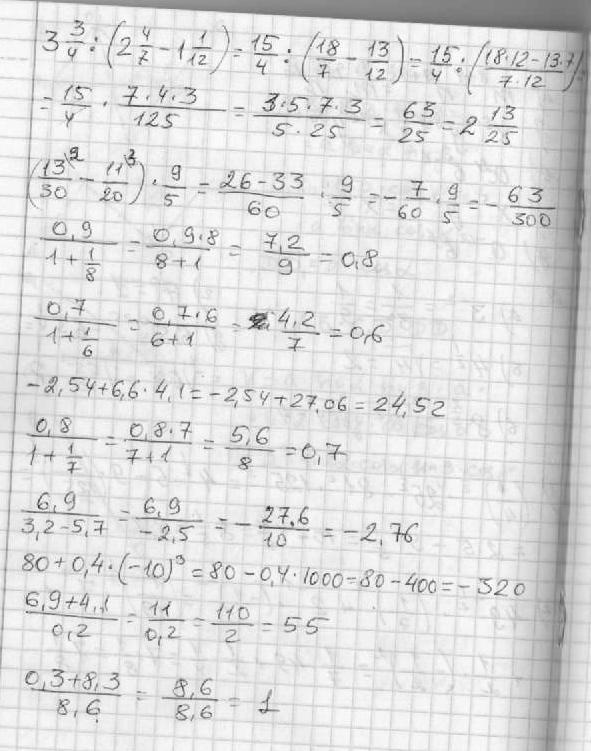 3 3/4 : (2 4/7 - 1 1/12) = 15/4 : (18/7 - 13/12) = 15/4 : ((18·12 - 13·7)/(7·12)) =
= 15/4 · (7·4·3)/125 = (3·5·7·3)/(5·25) = 63/25 = 2 13/25
(13\2/30 - 11\3/20) · 9/5 = (26-33)/60 · 9/5 = -7/60 · 9/5 = -63/300
0,9/(1+1/8) = (0,9·8)/(8+1) = 7,2/9 = 0,8
0,7/(1+1/6) = (0,7·6)/(6+1) = 4,2/7 = 0,6
-2,54+6,6·4,1 = -2,54+27,06 = 24,52
0,8/(1+1/7) = (0,8·7)/(7+1) = 5,6/8 = 0,7
6,9/(3,2-5,7) = 6,9/(-2,5) = -27,6/10 = -2,76
80+0,4·(-10)³ = 80-0,4·1000 = 80-400 = -320
(6,9+4,1)/0,2 = 11/0,2 = 110/2 = 55
(0,3+8,3)/8,6 = 8,6/8,6 = 1